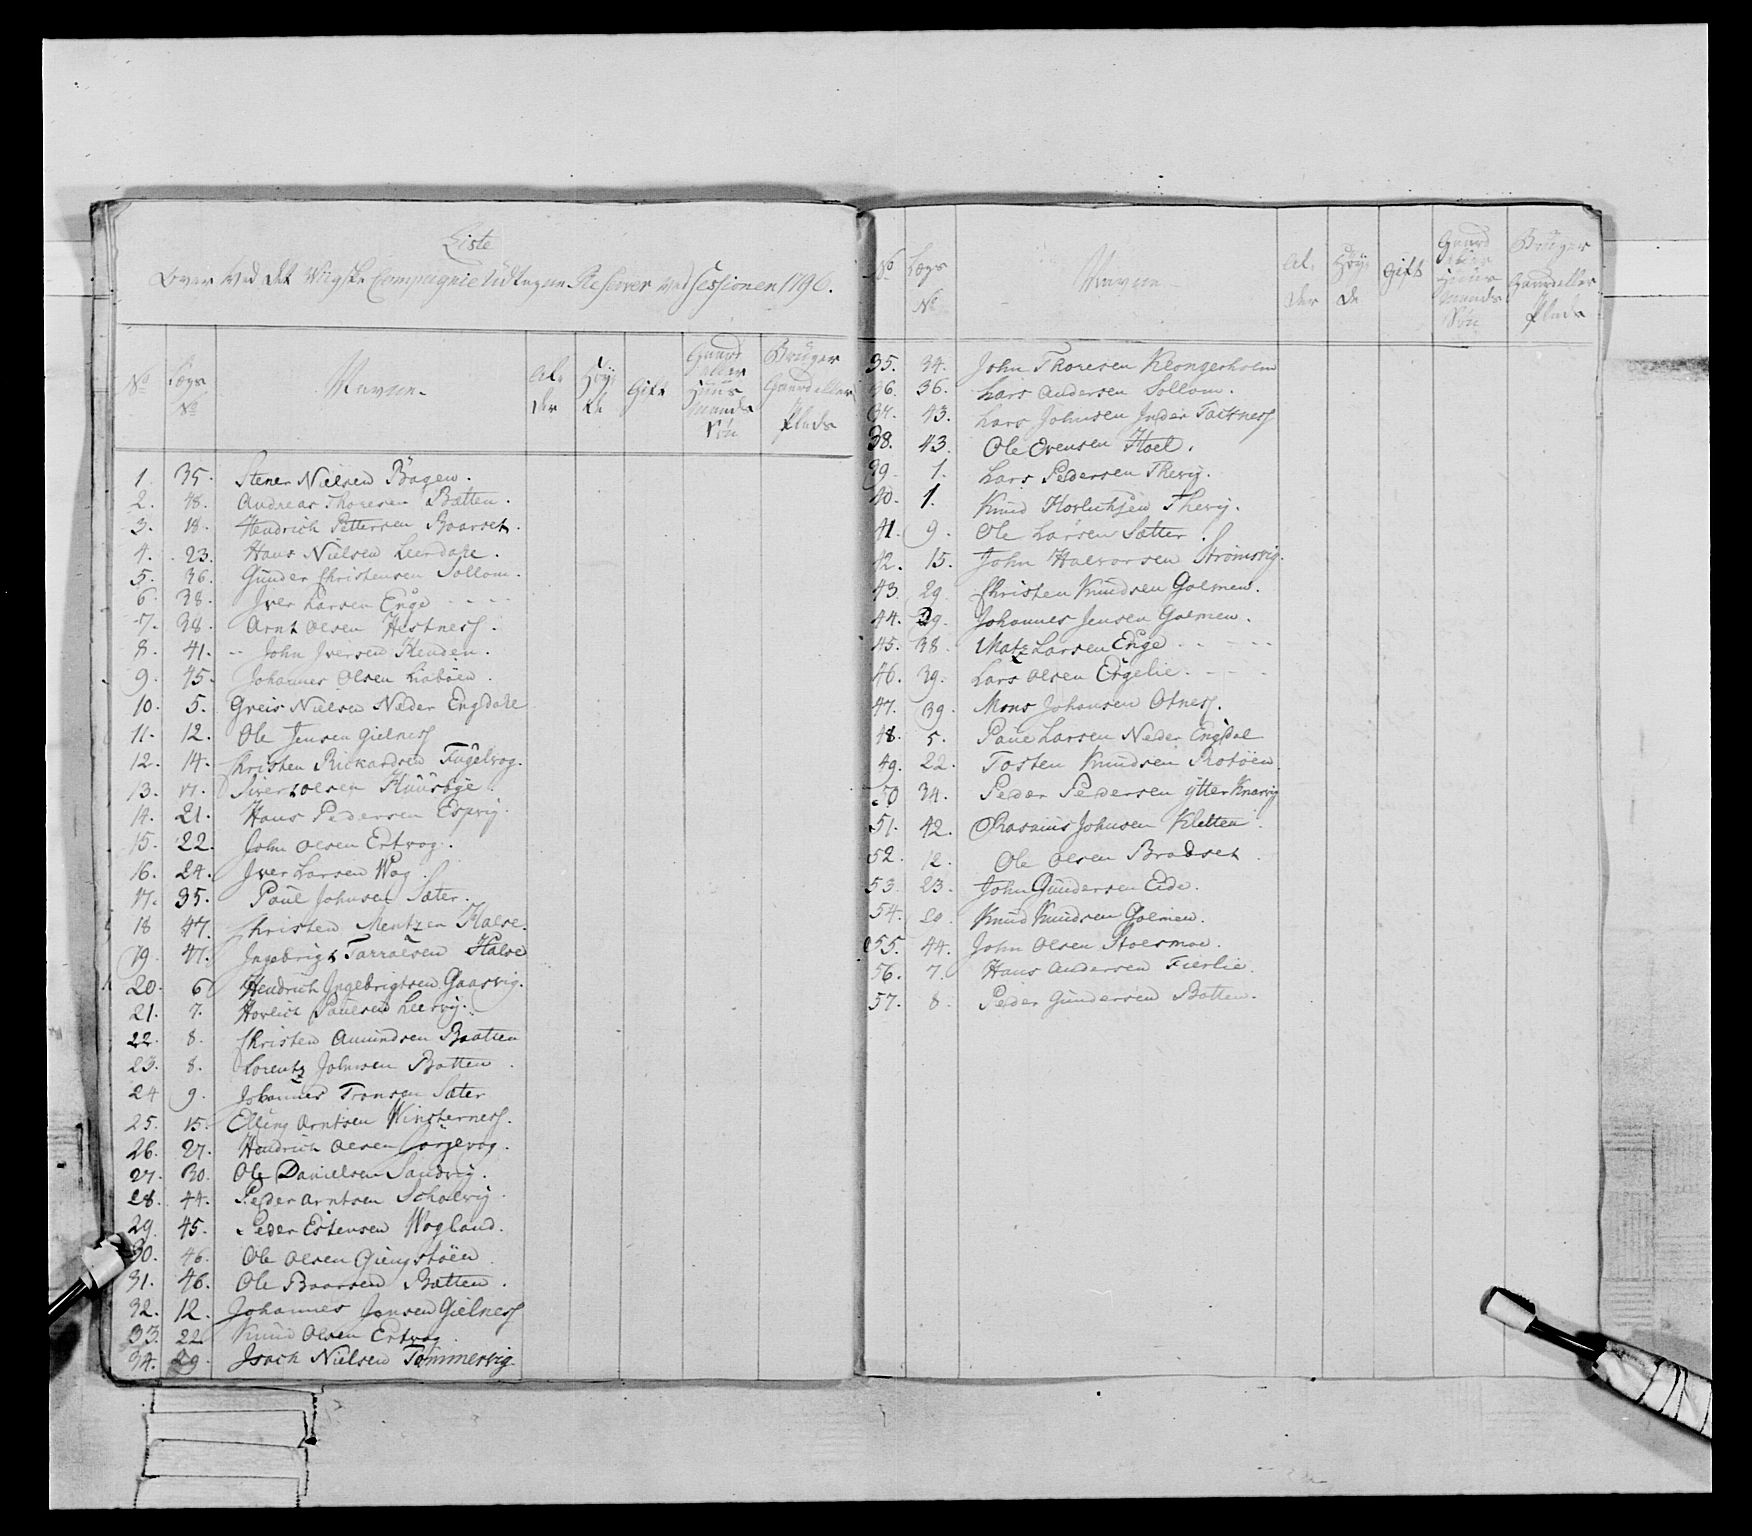 Liste
Over ved det Wugske Compagnie udtagne Reserver ved Sessionen 1796.
No Lægs No Navne. Al, der Höy, de Gift Gaard eller Huus Mands Søn Bruger Gaard eller Plads
1. 35. Stener Nielsen Bögen.
2. 18. Andreas Thoresen Batten.
3. 18. Hendrich Pettersen Baarset.
4. 23. Hans Nielsen Leerdahl.
5. 36. Gunder Christensen Sollom.
6. 38. Iver Larsen Enge
7. 38. Arnt Olsen Hestness.
8. 41. John Iversen Kenden.
9. 45. Johannes Olsen Liabøen.
10. 5. Greis Nielsen Neder Engdahl
11. 12. Ole Jensen Gielness
12. 14. Christen Rickardsen Fugelvog.
13. 17. Sivert Olsen Huusbye.
14. 21. Hans Pedersen Espvig.
15. 22. John Olsen Ertvog.
16. 24. Iver Larsen Wog.
17. 35. Paul Johnsen Sæter.
18 47. Christen Mentzen Halse.
19. 47. Ingebrigt Tarralsen Halse
20. 6 Hendrich Ingebrigtsen Gaasvig.
21. 7. Hovlich Paulsen Leervig.
22. 8. Christen Amundsen Baatten
23. 8. Lorentz Johnsen Botten
24 9. Johannes Tronsen Sæter
25. 15. Elling Arntsen Winsterness.
26. 27. Hendrich Olsen Corgevog.
27. 30. Ole Danielsen Sandvig.
28. 44. Peder Arntsen Schalvig
29. 45. Peder Estensen Wogland.
30. 46. Ole Olsen Giengstøen
31. 46. Ole Baarsen Batten.
32. 12. Johannes Jonsen Gielness
33. 22. Knud Olsen Ertvog.
34. 29. Isach Nielsen Tømmervig
No Lægs No Navne Al, der Höy, de Gift Gaard eller Huus Mands Søn Bruger Gaard eller Plads
35. 34. John Thoresen Klongerholm
36. 36. Lars Andersen Sollom.
37. 43. Lars Johnsen Inder Taftness
38. 43. Ole Evensen Hoel.
39. 1. Lars Pedersen Thevig.
40. 1. Knud Thevig.
41. 9. Ole Larsen Sætter.
42. 15. John Halvorsen Strömsvig.
43. 29. Christen Knudsen Golmen.
44. 29. Johannes Jensen Golmen.
45. 38. Matz Larsen Enge
46. 39. Lars Olsen Engelie.
47. 39. Mons Johansen Otness.
48. 5. Paul Larsen Neder Engdal
49. 22. Tosten Knudsen Rotøen.
50 34. Peder Pedersen ytter Knarvig
51. 42. Rasmus Johnsen Kletten.
52. 12. Ole Olsen Brodset
53. 23. John Gundersen Eide.
54. 29. Knud Knudsen Golmen.
55. 44. John Olsen Stolsmoe.
56. 7. Hans Andersen Fierlie.
57. 8. Peder Gundersen Botten.